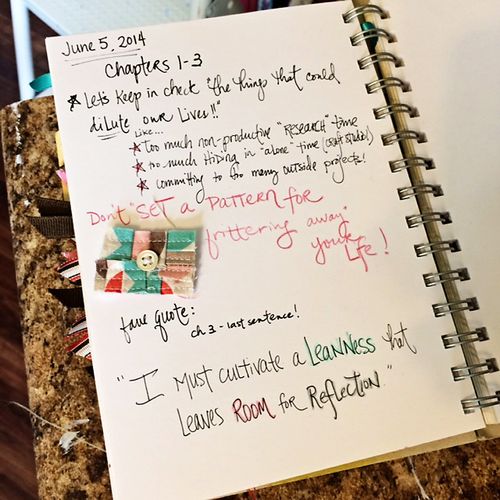 June 5, 2014
Chapters 1-3
Let's keep in check "the things that could
dilute our Lives!!"
Like...
too much non-productive "RESEARCH" time
too much Hiding in "alone" time (craft studio!)
committing to too many outside projects!
Don't "SET a PATTERN FOR
frittering away"
your
Life!
fave quote:
ch. 3 - last sentence!
"I Must cultivate a LEANNESS that
Leaves ROOM for Reflection."